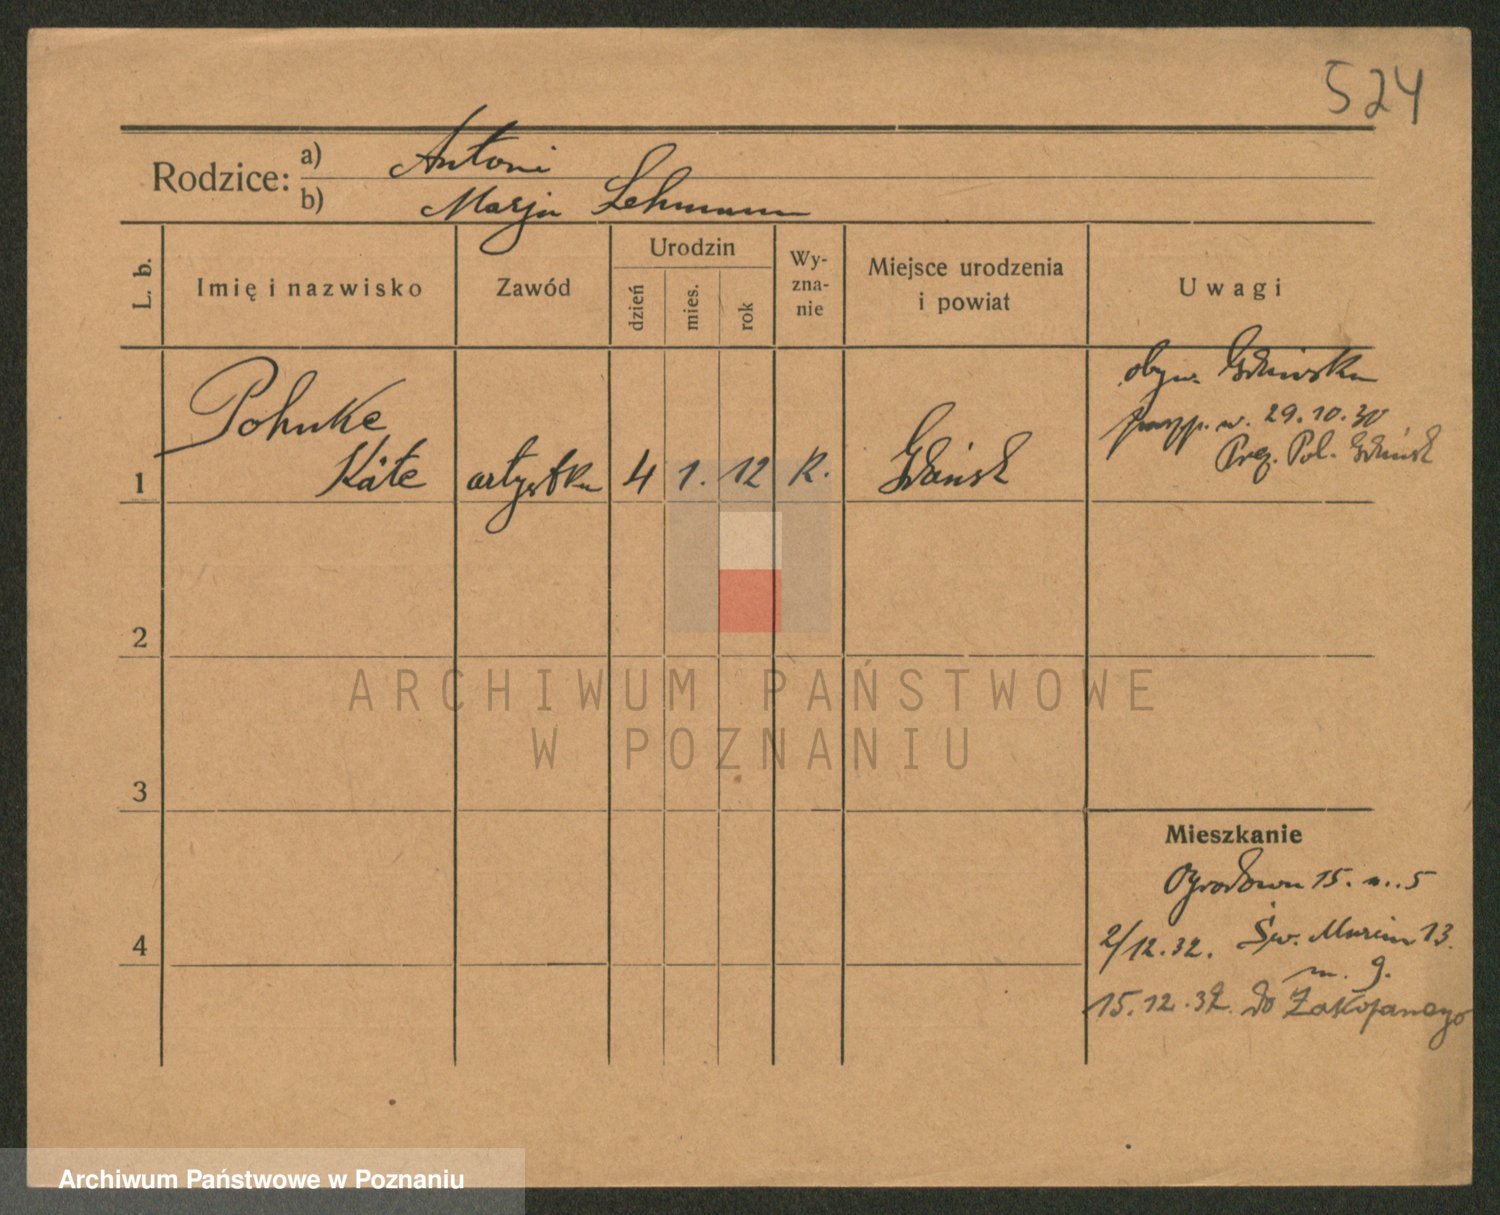 524
Rodzice: a) Antoni
b) Marja Lehmann
L. b.
Imię i nazwisko
Zawód
Urodzin
dzień
mies.
rok
Wy-
zna-
nie
Miejsce urodzenia
i powiat
Uwagi
1
Pohnke
Käte
artystka
4
1.
12
R.
Gdańsk
obyw. Gdańska
paszp. w. 29.10.30
Prez. Pol. Gdańsk
2
3
4
Mieszkanie
Ogrodowa 15. m. 5
2/12.32. Św. Marcin 13.
m. 9.
15.12.32. do Zakopanego
ARCHIWUM PAŃSTWOWE
W POZNANIU
Archiwum Państwowe w Poznaniu